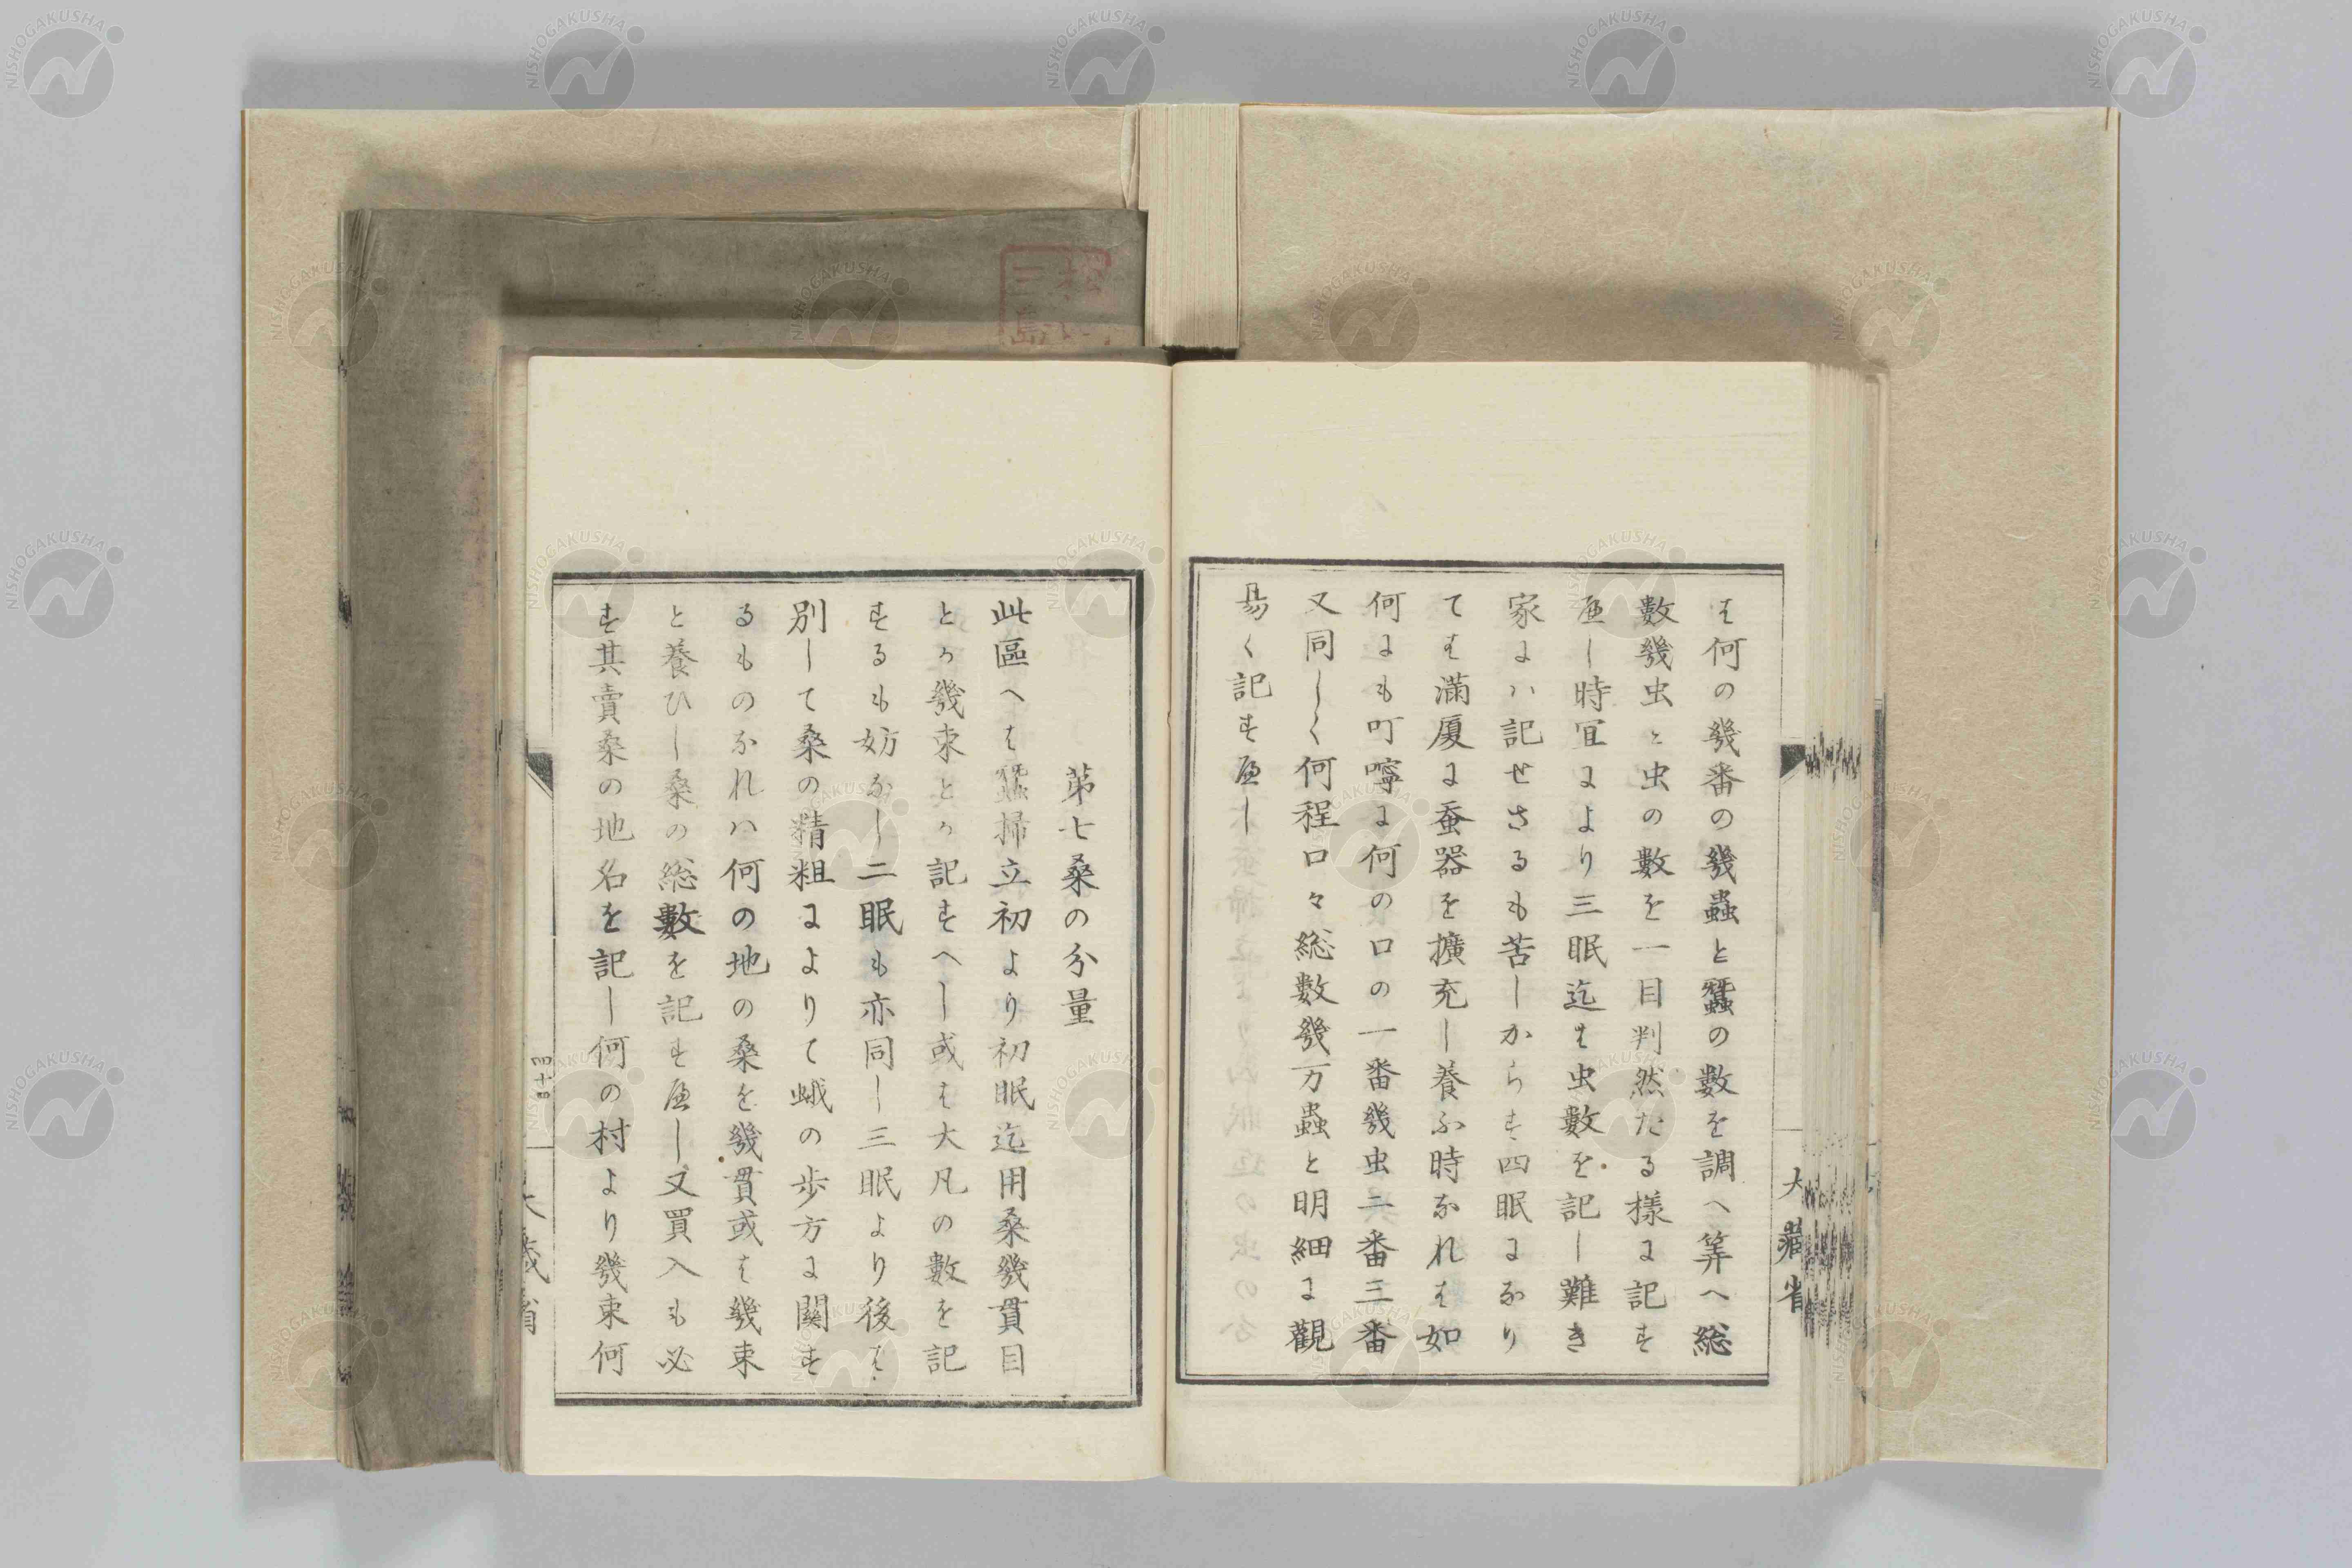 は何の幾番の幾蟲と蠶の數を調へ筭へ総
數幾虫と虫の數を一目判然たる様に記す
へし時宜により三眠迄は虫數を記し難き
家にハ記せさるも苦しからす四眠になり
ては滿厦に蚕器を擴充し養ふ時なれは如
何にも叮嚀に何の口の一番幾虫二番三番
又同しく何程口々総數幾万蟲と明細に觀
易く記すへし
大藏省
第七桑の分量
此區へは蠶掃立初より初眠迄用桑幾貫目
とか幾束とか記すへし或は大凡の數を記
するも妨なし二眠も亦同し三眠より後は
別して桑の精粗によりて蛾の歩方に關す
るものなれハ何の地の桑を幾貫或は幾束
と養ひし桑の総數を記すへし又買入も必
す其賣桑の地名を記し何の村より幾束何
大藏省
NISHOGAKUSHA
NISHOGAKUSHA
NISHOGAKUSHA
NISHOGAKUSHA
NISHOGAKUSHA